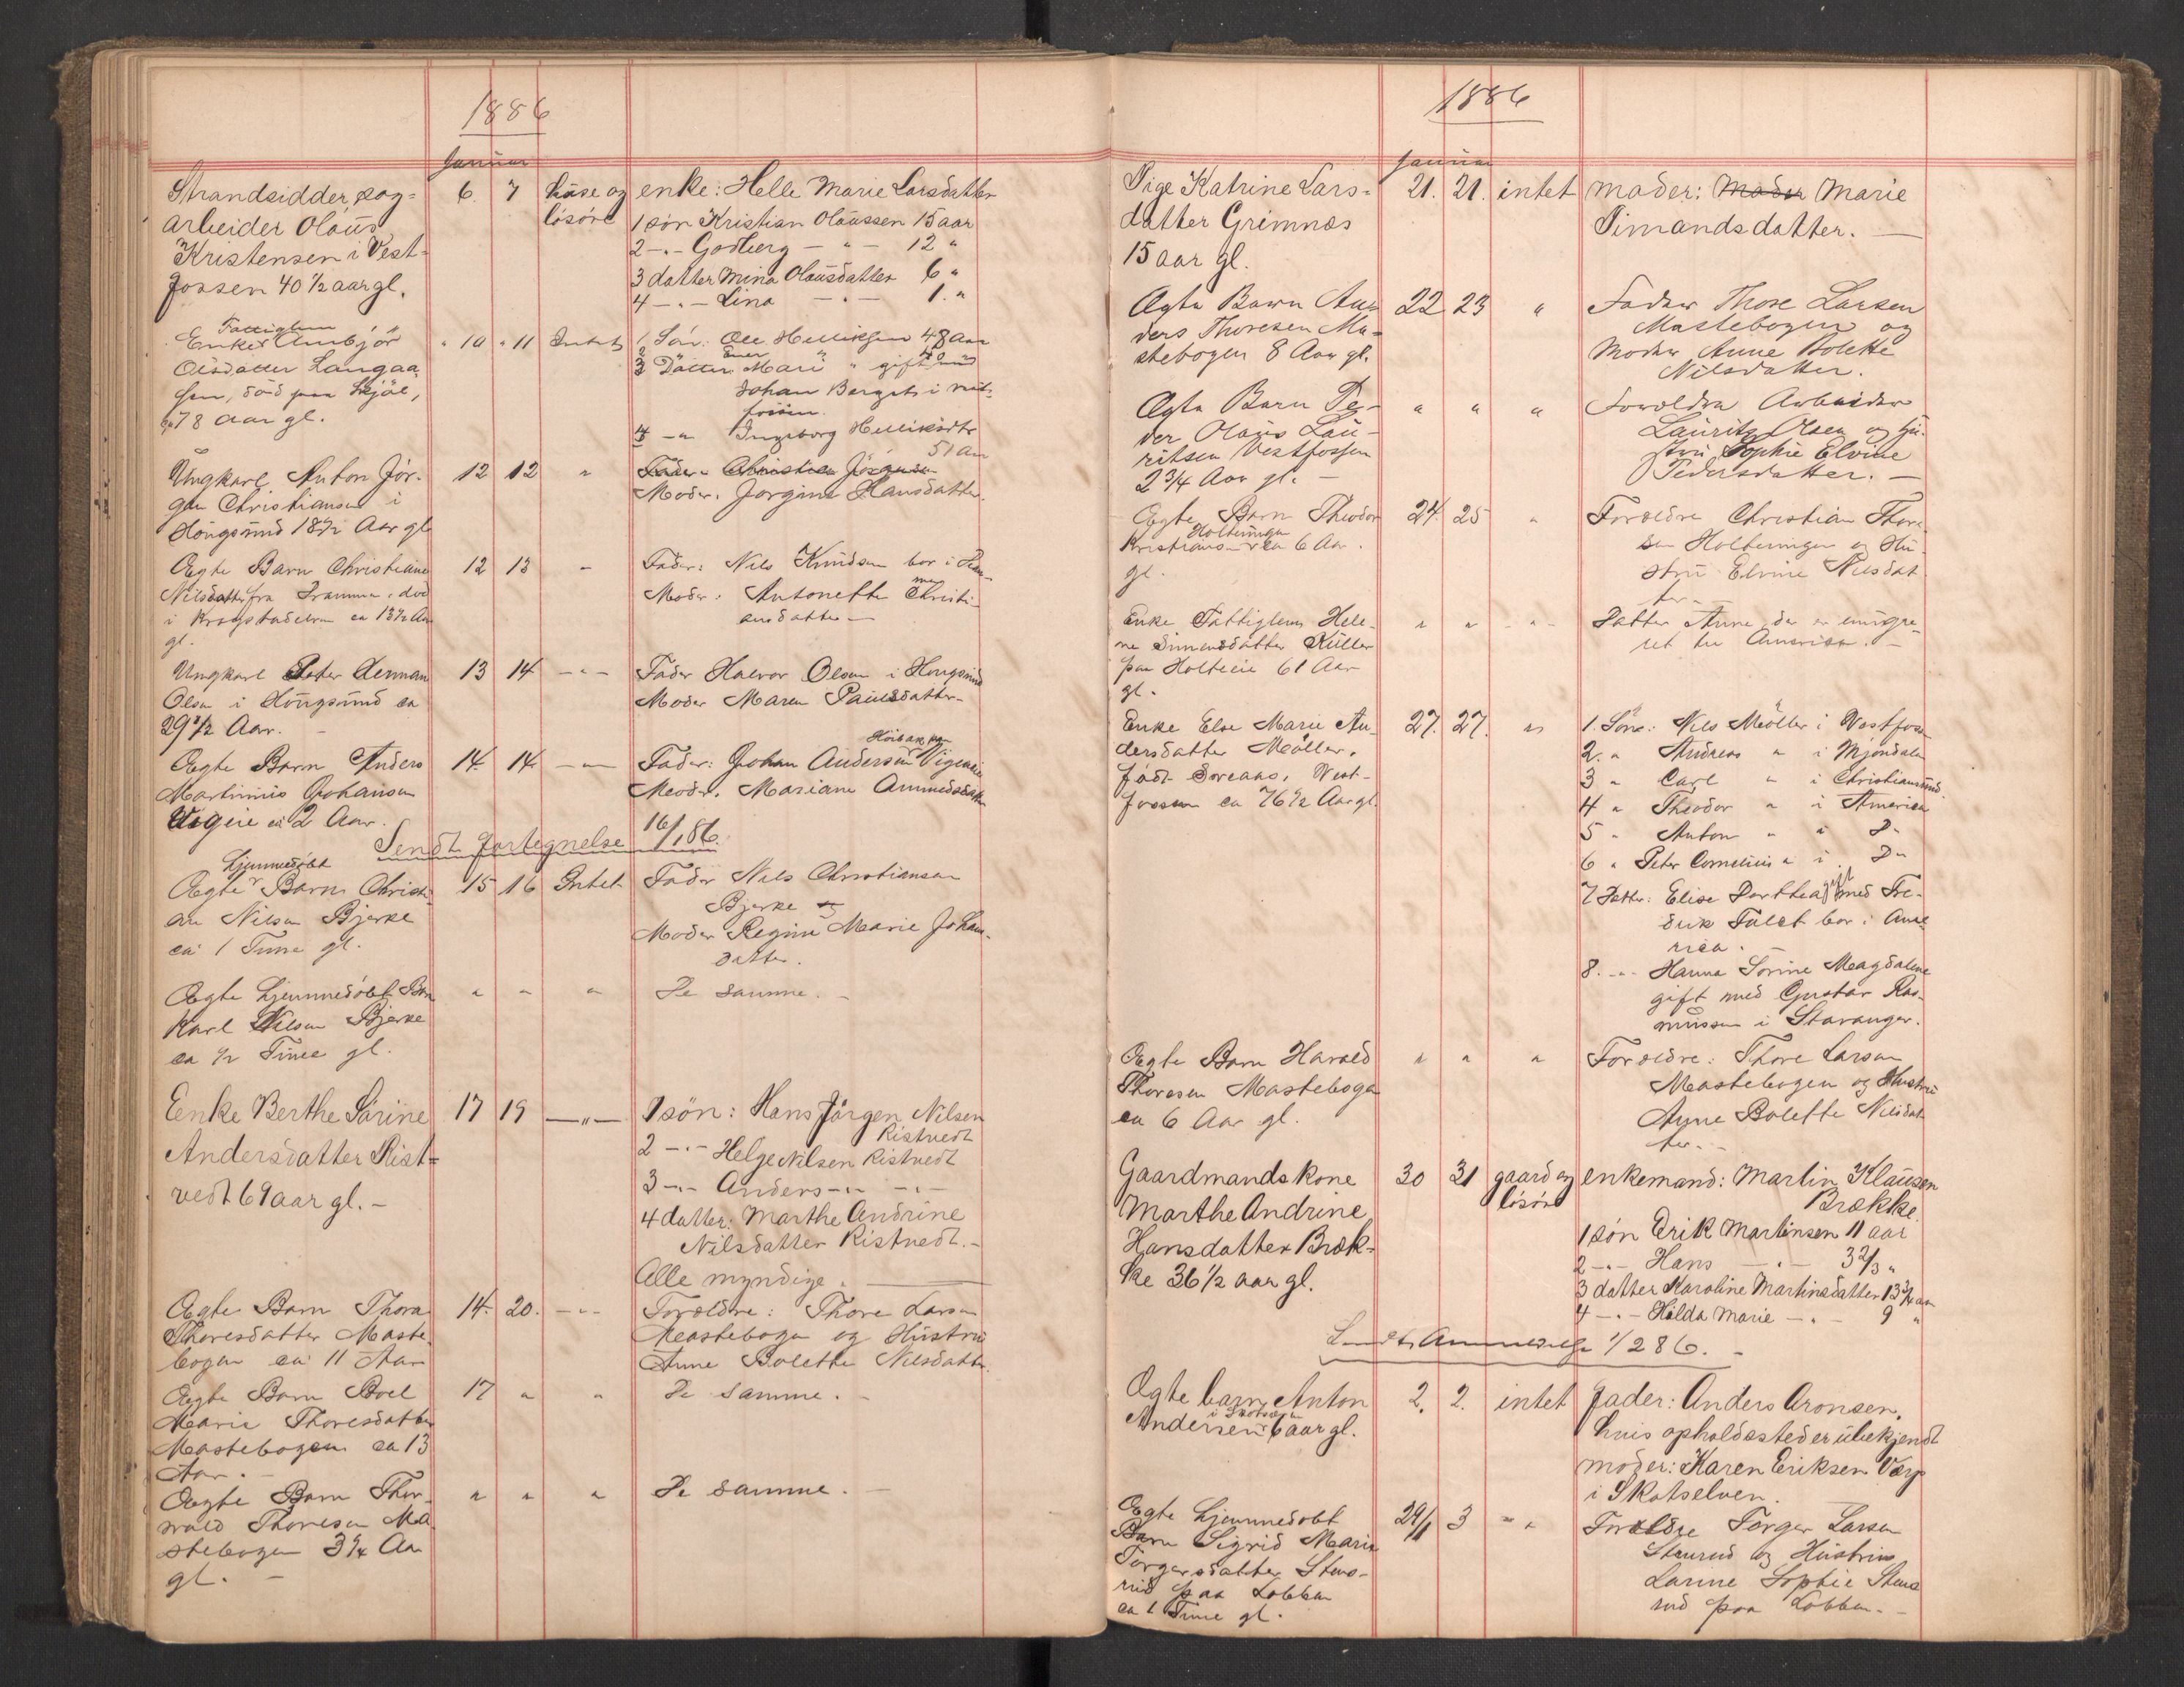 1886
Januar
Strandsidder og
arbeider Olaus
Kristensen i Vest-
fossen 40 1/2 aar gl.
6. 7 huse og
løsøre
enke: Helle Marie Larsdatter
1 søn Kristian Olaussen 15 aar
2 -"- Godberg - " - 12 "
3 datter Mina Olausdatter 6 "
4 -"- Lina -"- 1. "
Fattiglem
Enke Anbjør
Olsdatter Langaa-
sen, død paa Skjøl,
78 aar gl.
" 10 " 11 Intet
1 Søn: Ole Helliksen 48 Aar
3 Datter Mari " gift med
Johan Bergst i Vest-
fossen
4 -" Ingeborg Helliksdtr
51 Aar
Ungkarl Anton Jør-
gen Christiansen i
Hougsund 18 1/2 Aar gl
12 12 "
Fader: Christian Jörgensen
Moder. Jorgine Hansdatter.
Ægte Barn Christiane
Nilsdatter fra Drammen, død
i Krogstadelven ca 13 1/2 Aar
gl.
12 13 -
Fader: Nils Knudsen bor i Dram-
men
Moder: Antonette Christi-
ansdatter
Ungkarl Peter Herman
Olsen i Hougsund ca
29 1/2 Aar.
13 14 -"-
Fader Halvor Olsen i Hougsund
Moder Maren Paulsdatter-
Ægte Barn Anders
Martinius Johansen
Vigeie ca 2 Aar.
14. 14. -"-
Fader: Johan Andersen Vigeeie
Moder. Mariane Ammedsdatter
Sendt fortegnelse 16/1 86.
hjemmedøbt
Ægte Barn Christi-
an Nilsen Bjerke
ca 1 Time gl.
15 16 Intet
Fader Nils Christiansen
Bjerke og
Moder Regine Marie Johans-
datter.
Ægte hjemmedøbt Barn
Karl Nilsen Bjerke
ca 1/2 Time gl.
" " "
De samme.
Enke Berthe Sörine
Andersdatter Rist-
vedt 69 aar gl. -
17 19 -"-
1 søn: Hans Jörgen Nilsen
Ristvedt
2 -"- Helge Nilsen Ristvedt
3 -"- Anders -"- -"-
4 datter: Marthe Andrine
Nilsdatter Ristvedt.-
Alle myndige.
Ægte Barn Thora
Thoresdatter Maste-
bogen ca 11 Aar
14. 20. -"-
Forældre: Thore Larsen
Mastebogen og Hustru
Anne Bolette Nilsdatter.
Ægte Barn Boel
Marie Thoresdatter
Mastebogen ca 13
Aar.
17 " "
De samme.
Ægte Barn Thor-
vald Thoresen Ma-
stebogen 3 1/4 Aar
gl. -
" " "
De samme. -
1886
Januar
Pige Katrine Lars-
datter Grimnæs
15 aar gl.
21. 21. intet
moder: Moder Marie
Simandsdatter.
Ægte Barn An-
ders Thoresen Ma-
stebogen 8 Aar gl.
22 23 "
Fader Thore Larsen
Mastebogen og
Moder Anne Bolette
Nilsdatter.
Ægte Barn Pe-
der Olaus Lau-
ritsen Vestfossen
2 3/4 Aar gl. -
" " "
Forældre Arbeider
Lauritz Olsen og Hu-
stru Sophie Elvine
Pedersdatter. -
Ægte Barn Theodor
Holteringen
Kristiansen ca 6 Aar.
gl.
24. 25 "
Forældre Christian Thor-
sen Holteringen og Hu-
stru Elvine Nilsdat
ter
Enke Fattiglem Hele-
ne Simensdatter
paa Holteeie 61 Aar
gl.
" " - " -
Datter Anne, der er emigre-
ret til America. -
Enke Else Marie An-
dersdatter Møller,
født Soreaas, Vest-
fossen ca 76 1/2 Aar gl.
27. 27. "
1. Søn: Nils Møller i Vestfoss.
2. " Andreas " i Mjøndalen
3 " Carl " i Christiansund
4 " Theodor " i America
5 " Anton " " D-
6 " Peter Cornelius " i D-
7 Datter: Elise Dorthea gift med Fre-
drik Falct bor i Ame-
rica.
8. -"- Hanna Sørine Magdalene
gift med Gustav Ras-
mussen i Stavanger.
Ægte Barn Harald
Thoresen Mastebogen
ca 6 Aar gl.
" " "
Forældre: Thore Larsen
Mastebogen og Hustru
Anne Bolette Nilsdat
ter.
Gaardmandskone
Marthe Andrine
Hansdatter Bræk-
ke 36 1/2 aar gl.
30 31 gaard og
løsøre
enkemand: Martin Klausen
Brække.
1 søn Erik Martinsen 11 aar
2 -"- Hans -"- 3 2/3 "
3 datter Karoline Martinsdatter 13 3/4 aar
4 -"- Hilda Marie -"- 9 "
Sendt Anmeldelse 1/2 86. -
Ægte barn Anton
i Skotselven
Andersen 6 aar gl.
2. 2. intet
fader: Anders Aronsen,
hvis opholdssted er ubekjendt
moder: Karen Eriksen Værp
i Skotselven.
Ægte hjemmedøbt
Barn Sigrid Marie
Torgersdatter Stens-
rud paa Lobben
ca 1 Time gl.
29/1 3 - "
Forældre Torger Larsen
Stensrud og Hustru
Larine Sophie Stens
rud paa Lobben. -